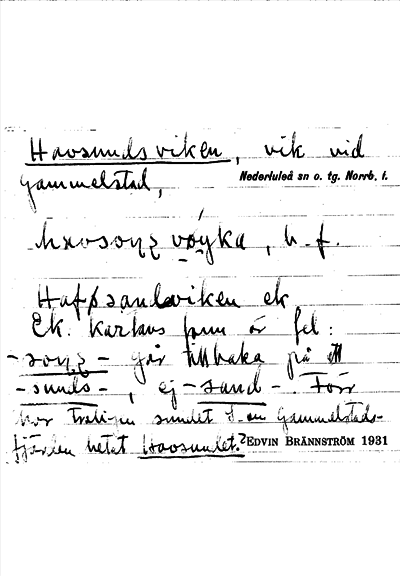 Havsundsviken, vik vid
Gammelstad,
Nederluleå sn o. tg. Norrb. l.
b. f.
Hafssandsviken ek
Ek. kartans form är fel:
- går tillbaka på ett
-sunds-, ej -sand-. Förr
har troligen sundet Gammelstads-
fjärden hetat Havsundet.?
EDVIN BRÄNNSTRÖM 1931